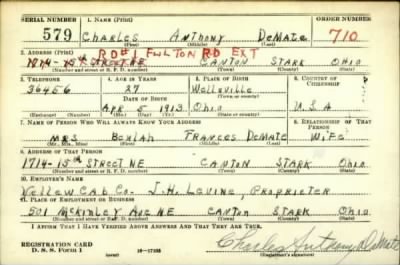 SERIAL NUMBER 1. NAME (Print) ORDER NUMBER
579 CHARLES ANTHONY DEMATE 710
(First) (Middle) (Last)
RD#1 FULTON RD EXT
2. ADDRESS (Print)
1714-15th ST NE CANTON STARK OHIO
(Number and street or R. F. D. number) (Town) (County) (State)
3. TELEPHONE 4. AGE IN YEARS 5. PLACE OF BIRTH 6. COUNTRY OF CITIZENSHIP
36456 27 Wellsville
DATE OF BIRTH (Town or county)
APR 5 1913 Ohio U.S.A
(Exchange) (Number) (Mo.) (Day) (Yr.) (State or country)
7. NAME OF PERSON WHO WILL ALWAYS KNOW YOUR ADDRESS 8. RELATIONSHIP OF THAT PERSON
MRS BEULAH FRANCES DEMATE WIFE
(Mr., Mrs., Miss) (First) (Middle) (Last)
9. ADDRESS OF THAT PERSON
1714-15th STREET NE CANTON STARK OHIO
(Number and street or R. F. D. number) (Town) (County) (State)
10. EMPLOYER'S NAME
YELLOW CAB CO. J.H. LEVINE, PROPRIETER
11. PLACE OF EMPLOYMENT OR BUSINESS
501 MCKINLEY AVE NE CANTON STARK OHIO
(Number and street or R. F. D. number) (Town) (County) (State)
I AFFIRM THAT I HAVE VERIFIED ABOVE ANSWERS AND THAT THEY ARE TRUE.
REGISTRATION CARD
D. S. S. Form 1 16-17105 Charles Anthony DeMate
(Registrant's signature)